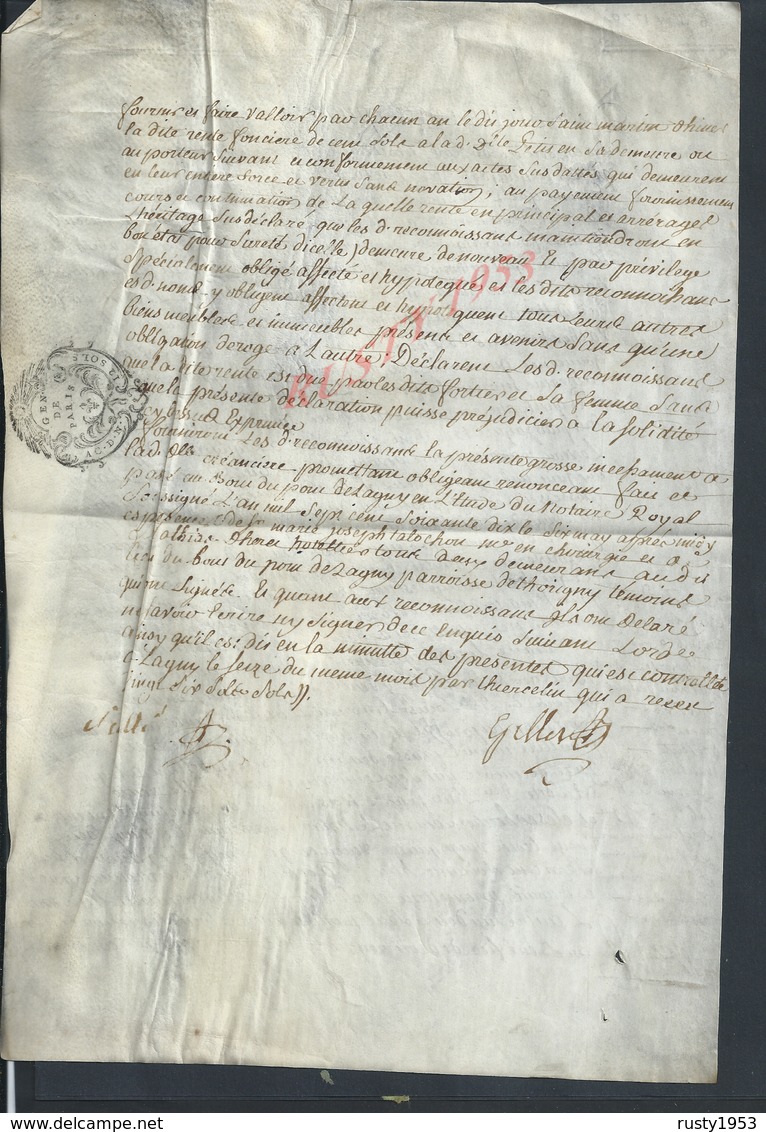 fournir et faire valloir par chacun an le dit jour Saint martin d'hiver
la dite rente fonciere de cent sols a la d. Dlle en sa demeure ou
au porteur suivant et conformement aux actes susdattés qui demeurent
en leur entiere force et vertu sans novation, au payement fournissement
cours et continuation de la quelle rente en principal et arrérages
L'héritage susdéclaré, que les d. reconnoissans maintiendront en
bon état pour sureté d'icelle, demeure de nouveau et par privilege
Spécialement obligé affecté et hypotequé et les dits reconnoissans
es d. noms y obligent affectent et hypotequent tous leurs autres
biens meubles et immeubles présens et avenirs sans qu'une
obligation deroge a L'autre, Déclarent Les d. reconnoissans
que la dite rente est due par les dits fortier et Sa femme Sans
que la présente déclaration puisse préjudicier a la solidité
cy dessus Exprimée
fourniront Les d. reconnoissans la présente grosse incessament a
la d. Dlle créanciere promettant obligeant renonceant fait et
passé au Bout du pont de Lagny en L'Etude du Notaire Royal
Soussigné L'an mil Sept cent Soixante dix le Six may après midy
es présences de Sr marie joseph talochon me en chirurgie et de
Mathias hotellier tous deux demeurans au dit
lieu du bout du pont de Lagny parroisse de thorigny temoins
qui ont Signés. Et quant aux reconnoissans ils ont Delaré
ne savoir Ecrire ny Signer de ce Enquis Suivant Lord.ce
ainsy qu'il est dit en la minutte des presentes qui est controllée
a Lagny le seize du meme mois par thiercelin qui a receu
vingt Six Sols
Scellé
Gilles
GEN
DE
PARIS
SOLS
RUSTY 1953
rusty1953